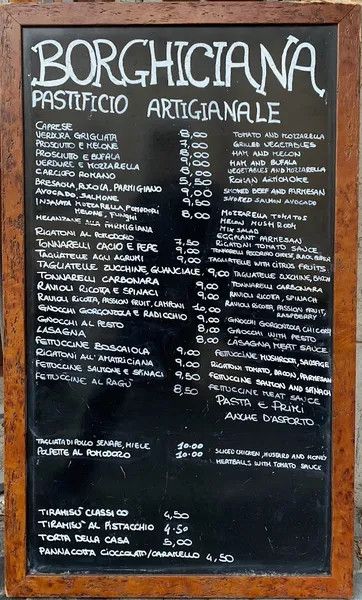 BORGHICIANA
PASTIFICIO ARTIGIANALE
CAPRESE 8,00 TOMATO AND MOZZARELLA
VERDURA GRIGLIATA 7,00 GRILLED VEGETABLES
PROSCIUTO E MELONE 8,00 HAM AND MELON
PROSCIUTO E BUFALA 9,00 HAM AND BUFALA
VERDURE E MOZZARELLA 8,00 VEGETABLES AND MOZZARELLA
CARCIOFO ROMANO 5,50 ROMAN ARTICHOKE
BRESAOLA, RUCOLA, PARMIGIANO 9,00 SMOKED BEEF AND PARMESAN
AVOCADO, SALMONE 9,50 SMOKED SALMON AVOCADO
INSALATA MOZZARELLA, POMODORI 8,00 MOZZARELLA TOMATOS
MELONE, FUNGHI MELON MUSHROOM
MIX SALAD
MELANZANE ALLA PARMIGIANA EGGPLANT PARMESAN
RIGATONI AL POMODORO 7,50 RIGATONI TOMATO SAUCE
TONNARELLI CACIO E PEPE 9,00 TONNARELLI PECORINO CHEESE, BLACK PEPPER
TAGLIATELLE AGLI AGRUMI 9,00 TAGLIATELLE WITH CITRUS FRUITS
TAGLIATELLE ZUCCHINE, GUANCIALE, 9,00 TAGLIATELLE ZUCCHINE, BACON
TONNARELLI CARBONARA 9,00 TONNARELLI CARBONARA
RAVIOLI RICOTA E SPINACI 9,00 RAVIOLI RICOTA, SPINACH
RAVIOLI RICOTA, PASSION FRUIT, LAMPONI 10,00 RAVIOLI RICOTA, PASSION FRUIT, RASPBERRY
GNOCCHI GORGONZOLA E RADICCHIO 9,00 GNOCCHI GORGONZOLA, CHICORY
GNOCCHI AL PESTO 8,00 GNOCCHI WITH PESTO
LASAGNA 8,00 LASAGNA MEAT SAUCE
FETTUCINE BOSCAIOLA 9,00 FETTUCINE MUSHROOM, SAUSAGE
RIGATONI ALL'AMATRICIANA 9,00 RIGATONI TOMATO, BACON, PARMESAN
FETTUCCINE SALMONE E SPINACI 9,00 FETTUCINE SALMON AND SPINACH
FETTUCCINE AL RAGÙ 8,50 FETTUCCINE MEAT SAUCE
PASTA E PRIMI
ANCHE D'ASPORTO
TAGLIATA DI POLLO SENAPE, MIELE 10.00 SLICED CHICKEN, MUSTARD AND HONEY
POLPETTE AL POMODORO 10.00 MEATBALLS WITH TOMATO SAUCE
TIRAMISÙ CLASSICO 4,50
TIRAMISÙ AL PISTACCHIO 4.50
TORTA DELLA CASA 5,00
PANNACOTTA CIOCCOLATO/CARAMELLO 4,50